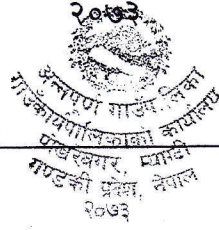 २०७३
अन्नपूर्ण गाउँपालिका
गाउँकार्यपालिकाको कार्यालय
पोखरेबगर, म्याग्दी
गण्डकी प्रदेश, नेपाल
२०७३